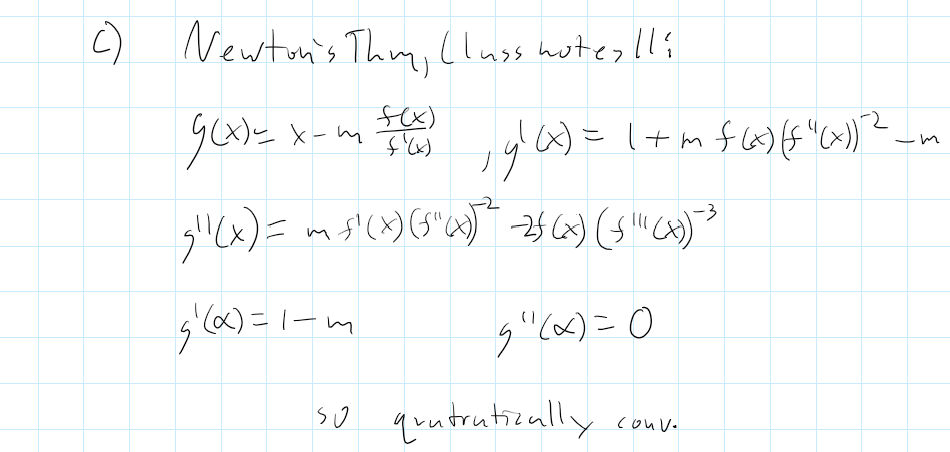 c) Newton's Thm, Class notes 11:
g(x) = x - m f(x)/f'(x) , g'(x) = 1 + m f(x) (f''(x))^-2 - m
g''(x) = m f'(x) (f''(x))^-2 - 2f(x) (f'''(x))^-3
g'(α) = 1 - m g''(α) = 0
so qutratically conv.